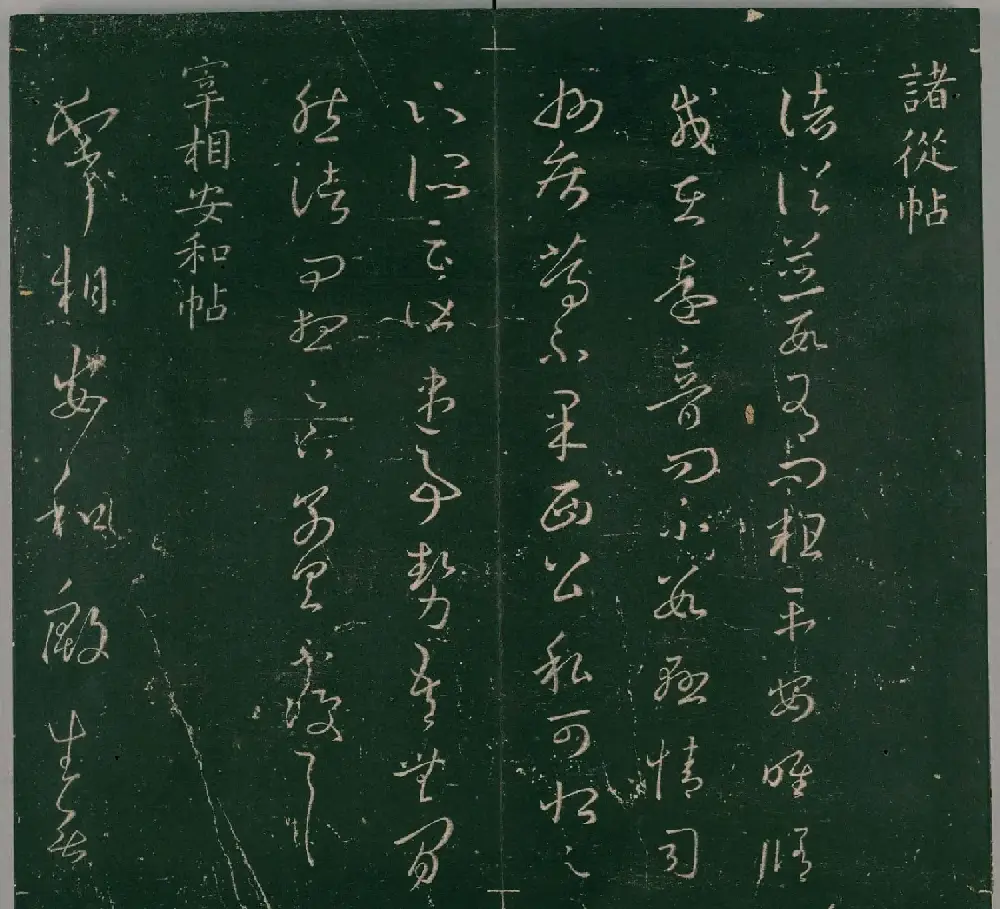 諸從帖
諸從並數有問粗平安唯脩
載在遠音問不數懸情司
州疾篤不果西公私可恨足
下所云皆盡事勢吾無間
然諸問想足下別具不復一一
宰相安和帖
宰相安和殷生無